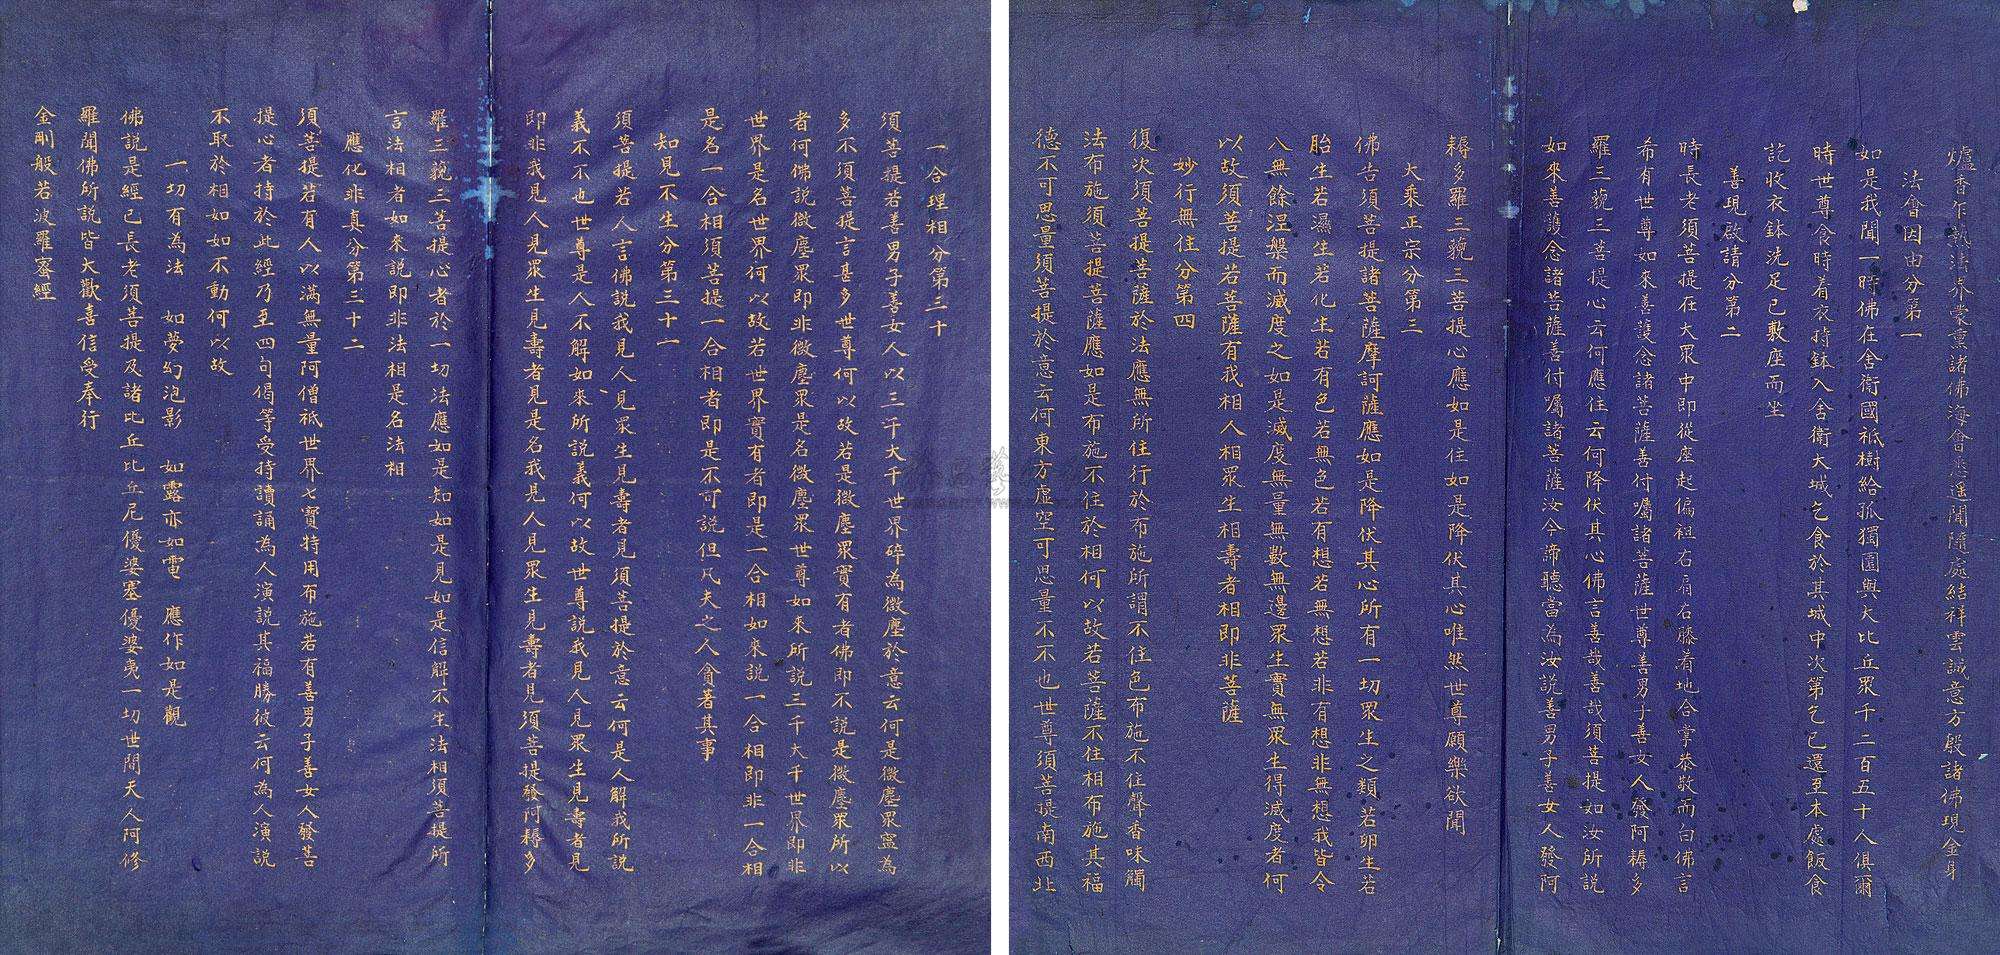 爐香乍熱法界蒙薰諸佛海會悉遥聞隨處結祥雲誠意方殷諸佛現金身
法會因由分第一
如是我聞一時佛在舍衛國祗樹給孤獨園與大比丘眾千二百五十人俱爾
時世尊食時着衣持鉢入舍衛大城乞食於其城中次第乞已還至本處飯食
訖收衣鉢洗足已敷座而坐
善現啟請分第二
時長老須菩提在大眾中即從座起偏袒右肩右膝着地合掌恭敬而白佛言
希有世尊如來善護念諸菩薩善付囑諸菩薩世尊善男子善女人發阿耨多
羅三藐三菩提心云何應住云何降伏其心佛言善哉善哉須菩提如汝所説
如來善護念諸菩薩善付囑諸菩薩汝今諦聽當為汝説善男子善女人發阿
耨多羅三藐三菩提心應如是住如是降伏其心唯然世尊願樂欲聞
大乘正宗分第三
佛告須菩提諸菩薩摩訶薩應如是降伏其心所有一切眾生之類若卵生若
胎生若濕生若化生若有色若無色若有想若無想若非有想非無想我皆令
入無餘涅槃而滅度之如是滅度無量無數無邊眾生實無眾生得滅度者何
以故須菩提若菩薩有我相人相眾生相壽者相即非菩薩
妙行無住分第四
復次須菩提菩薩於法應無所住行於布施所謂不住色布施不住聲香味觸
法布施須菩提菩薩應如是布施不住於相何以故若菩薩不住相布施其福
德不可思量須菩提於意云何東方虛空可思量不不也世尊須菩提南西北
一合理相分第三十
須菩提若善男子善女人以三千大千世界碎為微塵於意云何是微塵眾寧為
多不須菩提言甚多世尊何以故若是微塵眾實有者佛即不説是微塵眾所以
者何佛説微塵眾即非微塵眾是名微塵眾世尊如來所説三千大千世界即非
世界是名世界何以故若世界實有者即是一合相如來説一合相即非一合相
是名一合相須菩提一合相者即是不可説但凡夫之人貪著其事
知見不生分第三十一
須菩提若人言佛説我見人見眾生見壽者見須菩提於意云何是人解我所説
義不不也世尊是人不解如來所説義何以故世尊説我見人見眾生見壽者見
即非我見人見眾生見壽者見是名我見人見眾生見壽者見須菩提發阿耨多
羅三藐三菩提心者於一切法應如是知如是見如是信解不生法相須菩提所
言法相者如來説即非法相是名法相
應化非真分第三十二
須菩提若有人以滿無量阿僧祗世界七寶持用布施若有善男子善女人發菩
提心者持於此經乃至四句偈等受持讀誦為人演説其福勝彼云何為人演説
不取於相如如不動何以故
一切有為法　如夢幻泡影　如露亦如電　應作如是觀
佛説是經已長老須菩提及諸比丘比丘尼優婆塞優婆夷一切世間天人阿修
羅聞佛所説皆大歡喜信受奉行
金剛般若波羅蜜經